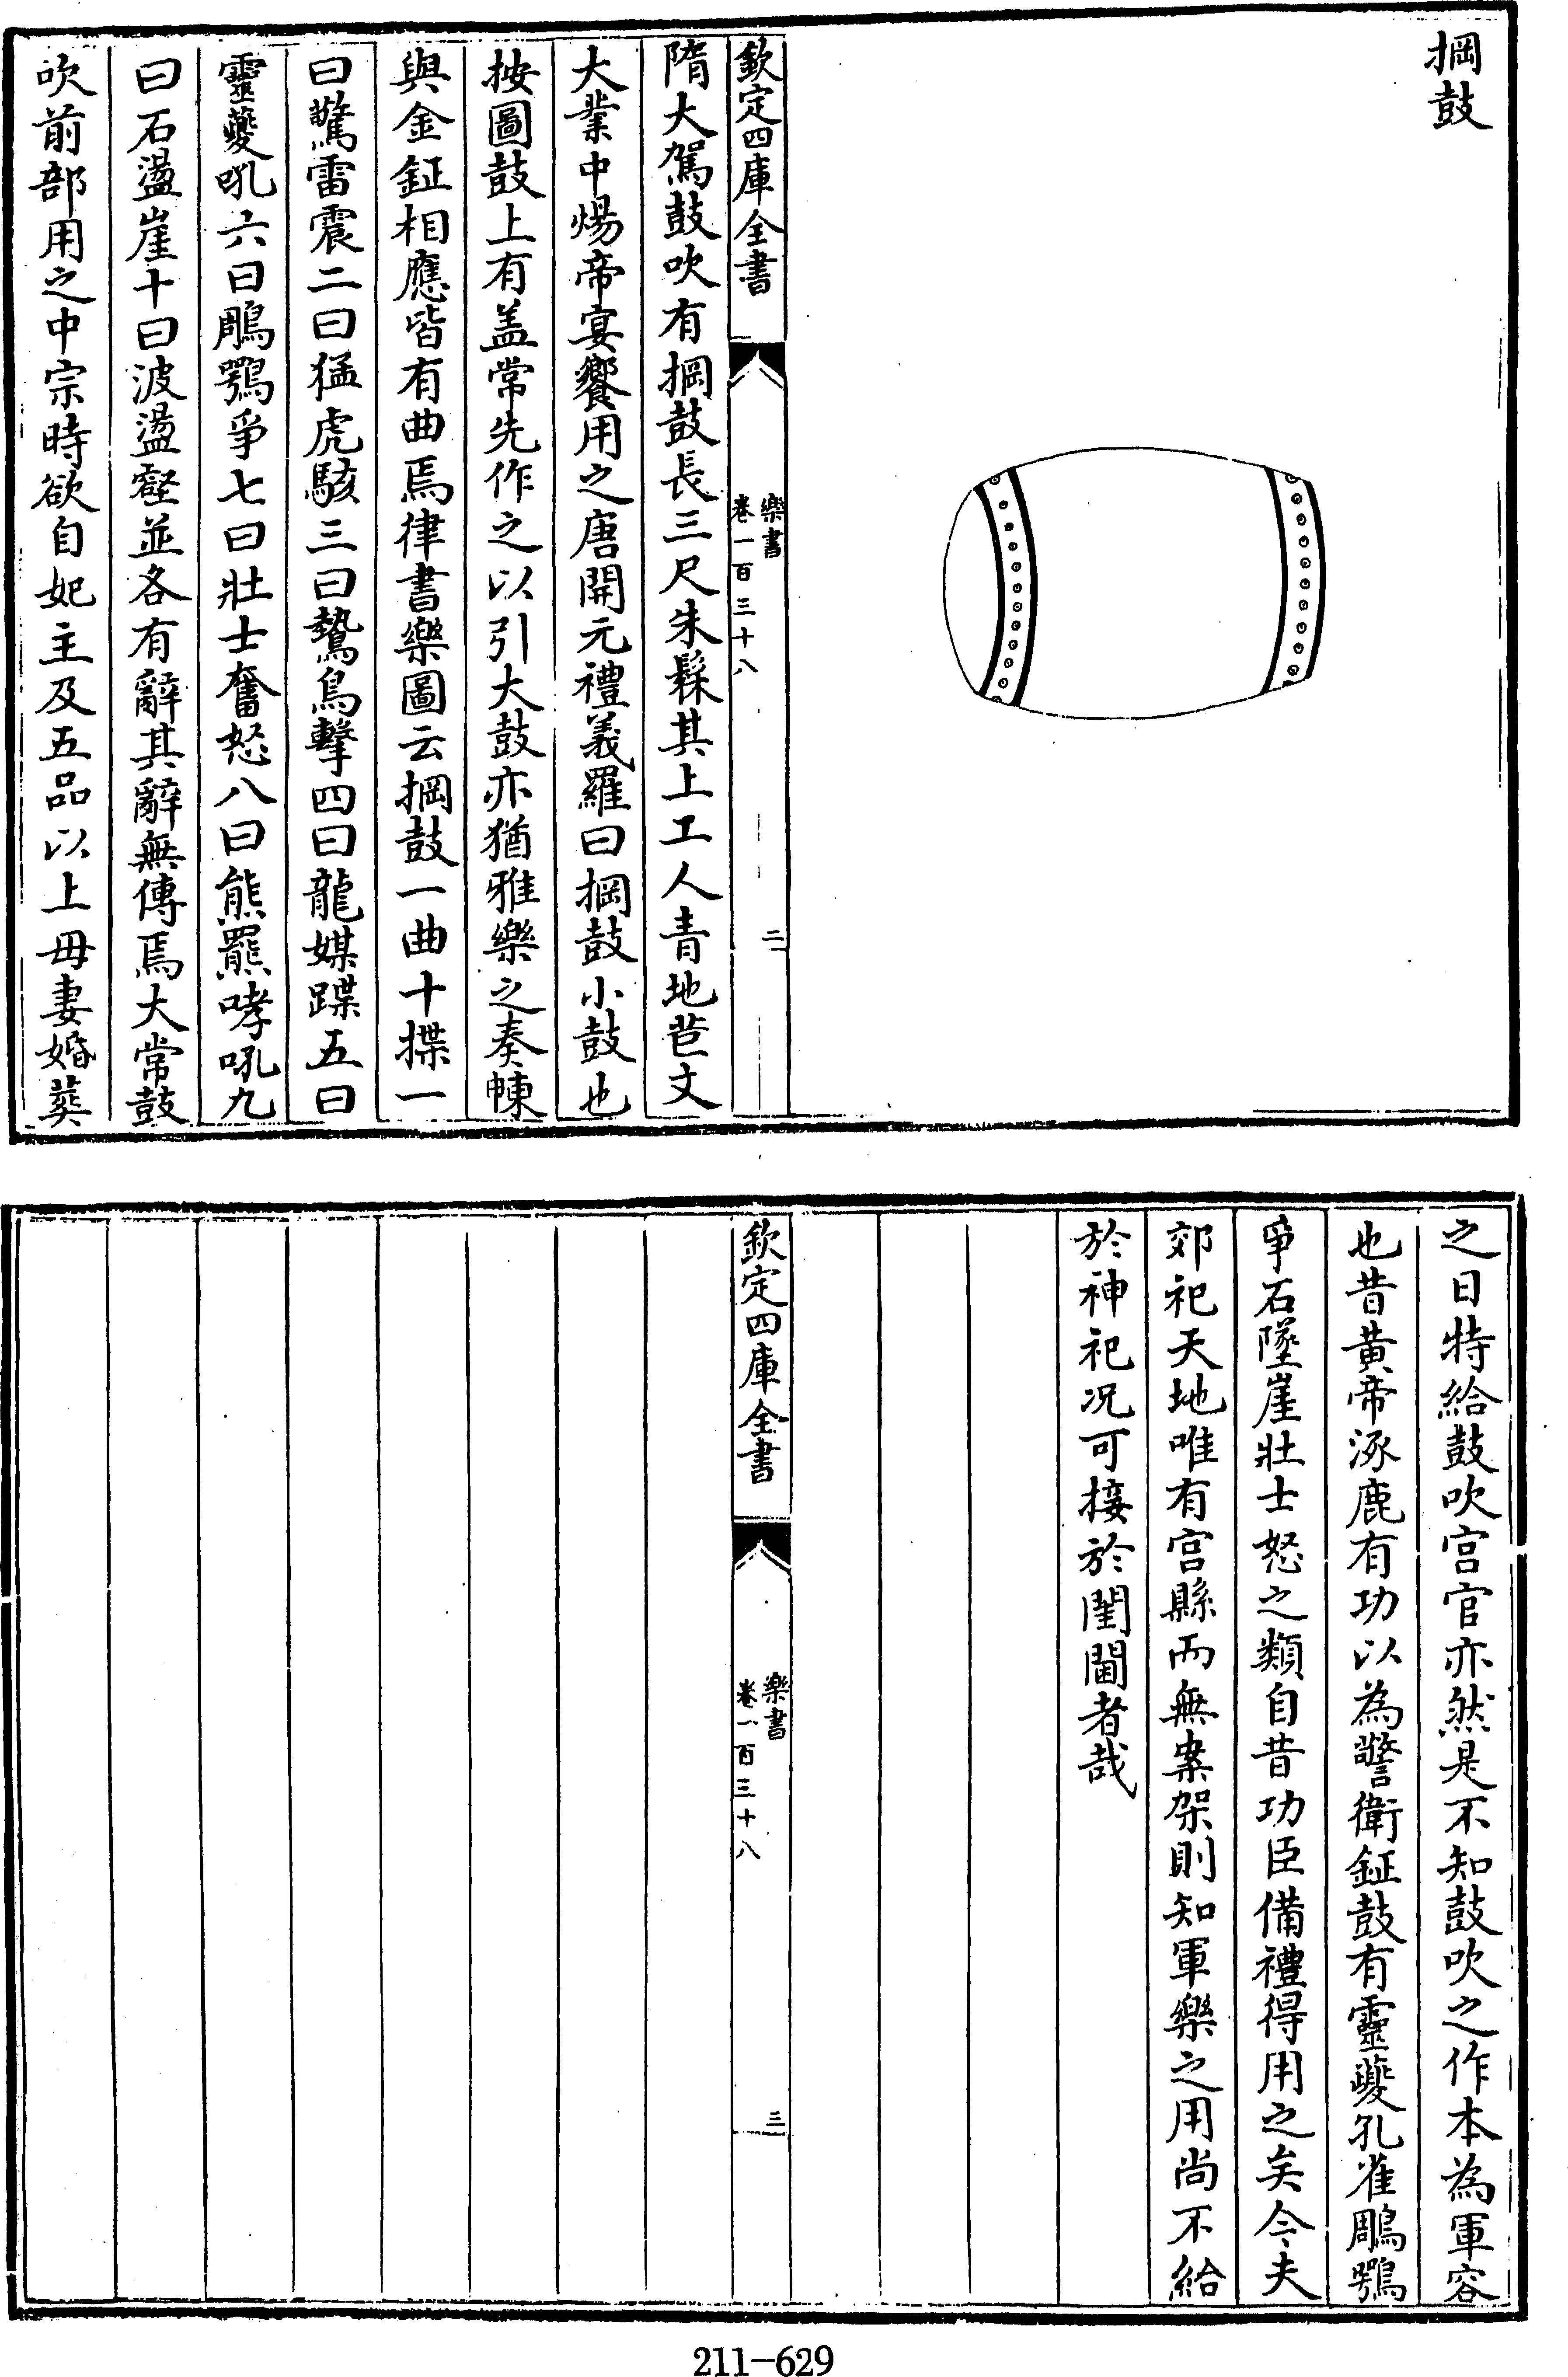 掆鼓
欽定四庫全書
樂書
卷一百三十八
二
隋大駕鼓吹有掆鼓長三尺朱髹其上工人青地苣文
大業中煬帝宴饗用之唐開元禮義羅曰掆鼓小鼓也
按圖鼓上有盖常先作之以引大鼓亦猶雅樂之奏㯥
與金鉦相應皆有曲焉律書樂圖云掆鼓一曲十揲一
曰驚雷震二曰猛虎駭三曰鷙鳥擊四曰龍媒蹀五曰
靈夔吼六曰鵰鶚爭七曰壯士奮怒八曰熊羆哮吼九
曰石盪崖十曰波盪壑並各有辭其辭無傳焉大常鼓
吹前部用之中宗時欲自妃主及五品以上母妻婚葬
之日特給鼓吹宫官亦然是不知鼓吹之作本為軍容
也昔黄帝涿鹿有功以為警衛鉦鼓有靈夔孔雀鵰鶚
爭石墜崖壯士怒之類自昔功臣備禮得用之矣今夫
郊祀天地唯有宫縣而無案架則知軍樂之用尚不給
於神祀况可接於閨閫者哉
欽定四庫全書
樂書
卷一百三十八
三
211-629